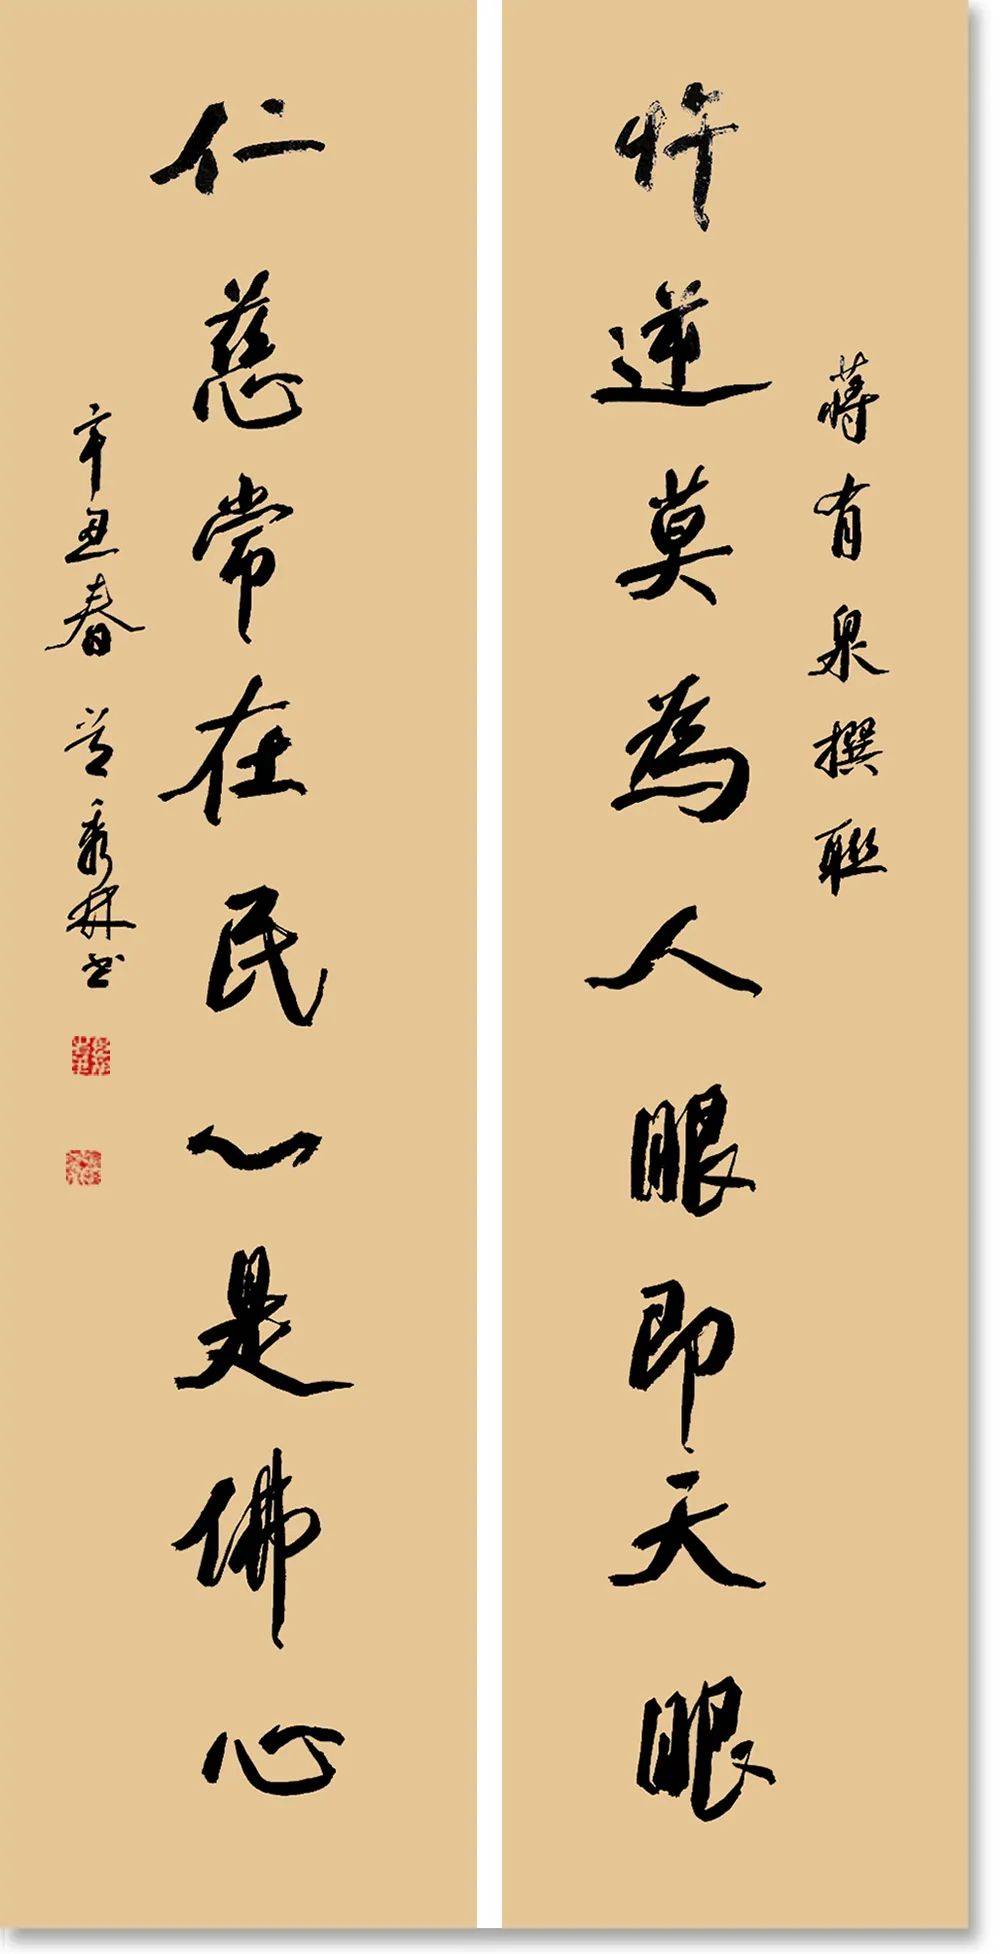 蔣有泉撰聯
忤逆莫為人眼即天眼
仁慈常在民心是佛心
辛丑春 秀林书